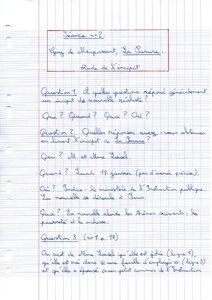 Séance n°2
Guy de Maupassant, La Parure.
Etude de l'incipit
Question 1. A quelles questions répond généralement
un incipit de nouvelle réaliste ?
Qui ? Quand ? Quoi ? Où ?
Question 2. Quelles réponses avez-vous obtenues
en lisant l'incipit de La Parure ?
Qui ? M. et Mme Loisel.
Quand ? Lundi 18 janvier (pas d'année précise).
Où ? Indice : le ministère de l'Instruction publique.
La nouvelle se déroule à Paris.
Quoi ? La nouvelle aborde les thèmes suivants : la
pauvreté et la richesse.
Question 3.
On sait de Mme Loisel qu'elle est jolie (ligne 1),
qu'elle est née dans une famille d'employés (ligne 3)
et qu'elle a épousé un petit commis de l'Instruction